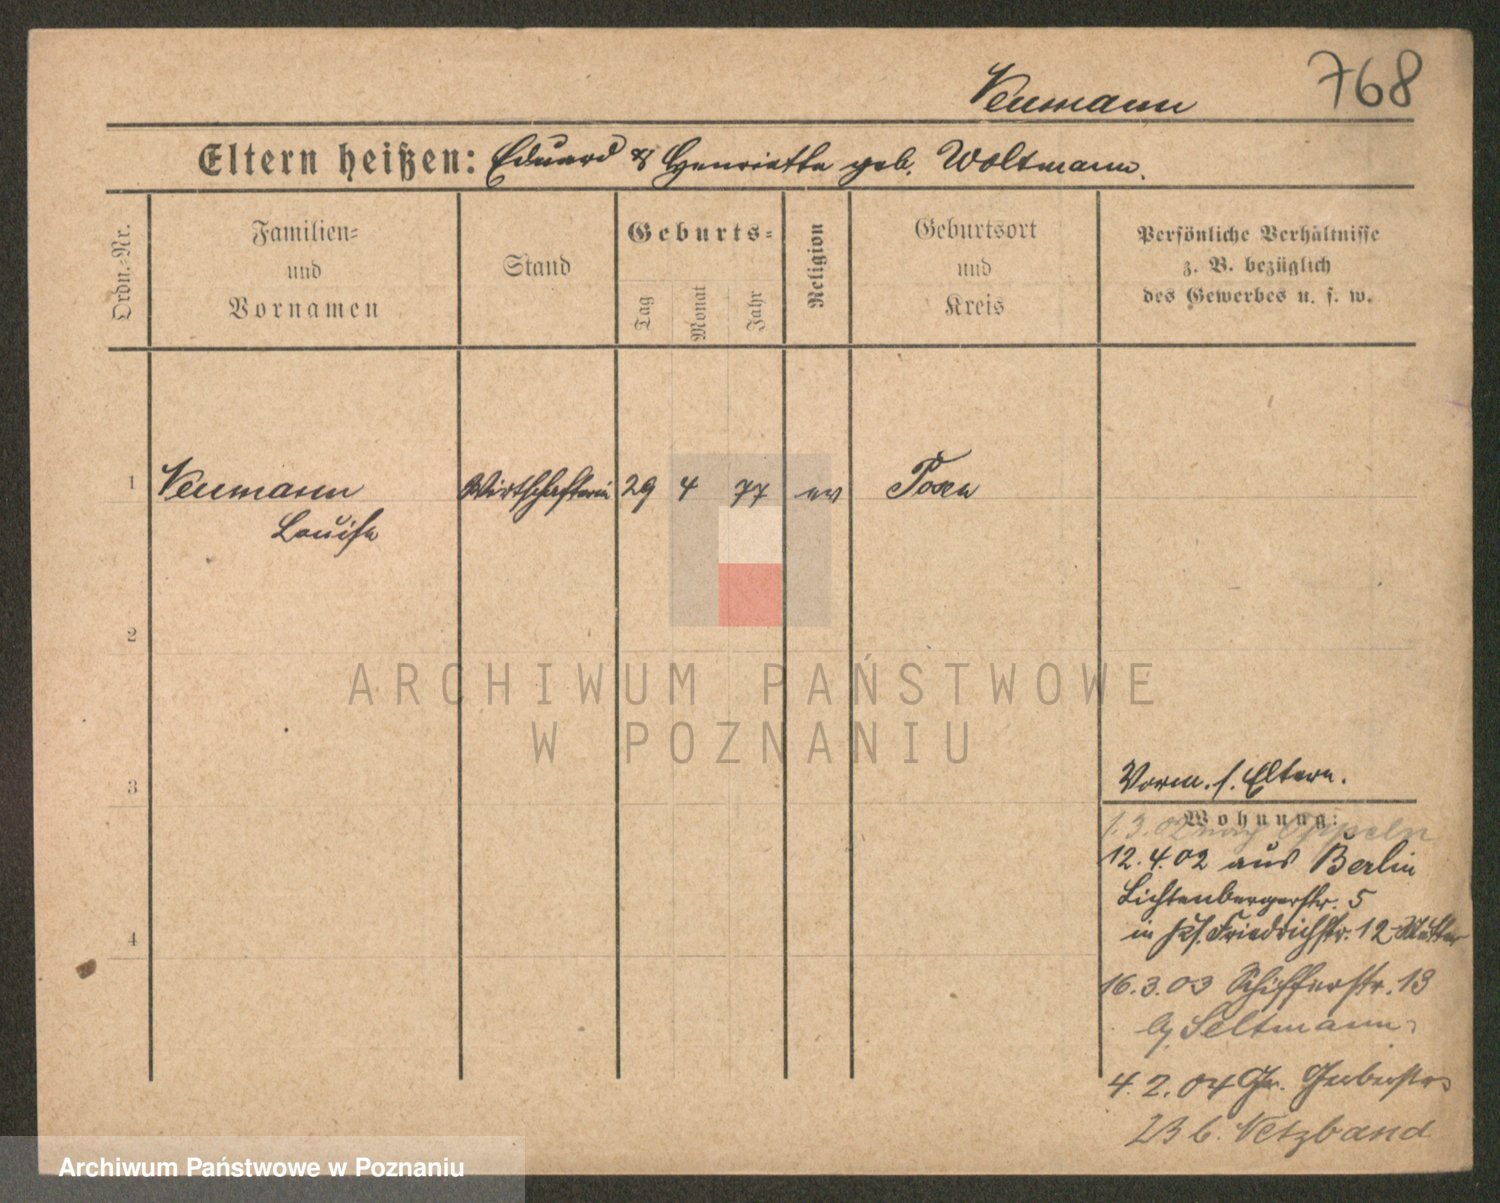 Neumann 768
Eltern heißen: Eduard & Henriette geb. Woltmann.
Ordn.-Nr.
Familien- und Vornamen
Stand
Geburts-
Tag
Monat
Jahr
Religion
Geburtsort und Kreis
Persönliche Verhältnisse z. B. bezüglich des Gewerbes u. s. w.
1 Neumann Wirthschafterin 29 4 77 ev Posen
Louise
2
ARCHIWUM PAŃSTWOWE
W POZNANIU
3
Vorm. s. Eltern.
Wohnung:
1.3.02 nach Oppeln
12.4.02 aus Berlin
Lichtenbergerstr. 5
in Friedrichstr. 12 Mutter
4
16.3.03 Schifferstr. 13
Seltmann
4.2.04 Gr. Gerberstr.
23 b. Netzband
Archiwum Państwowe w Poznaniu